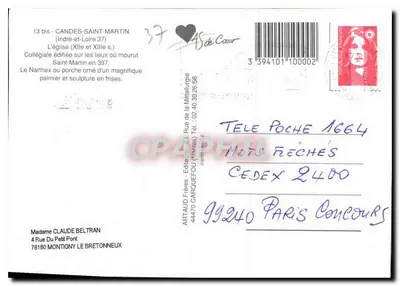 13 bis - CANDES-SAINT-MARTIN
(Indre-et-Loire 37)
L'église (XIIe et XIIIe s.)
Collégiale édifiée sur les lieux où mourut
Saint-Martin en 397.
Le Narthex ou porche orné d'un magnifique
palmier et sculpture en frises.
37
de Cœur
3 394101 100002
ARTAUD Frères - Editeurs Rue de la Métallurgie
44470 CARQUEFOU (Nantes) Tél. : 02.40.30.26.58
CPAPHIL
TELE POCHE 1664
MOTS FLECHÉS
CEDEX 2400
99240 PARIS CONCOURS
Madame CLAUDE BELTRAN
4 Rue Du Petit Pont
78180 MONTIGNY LE BRETONNEUX